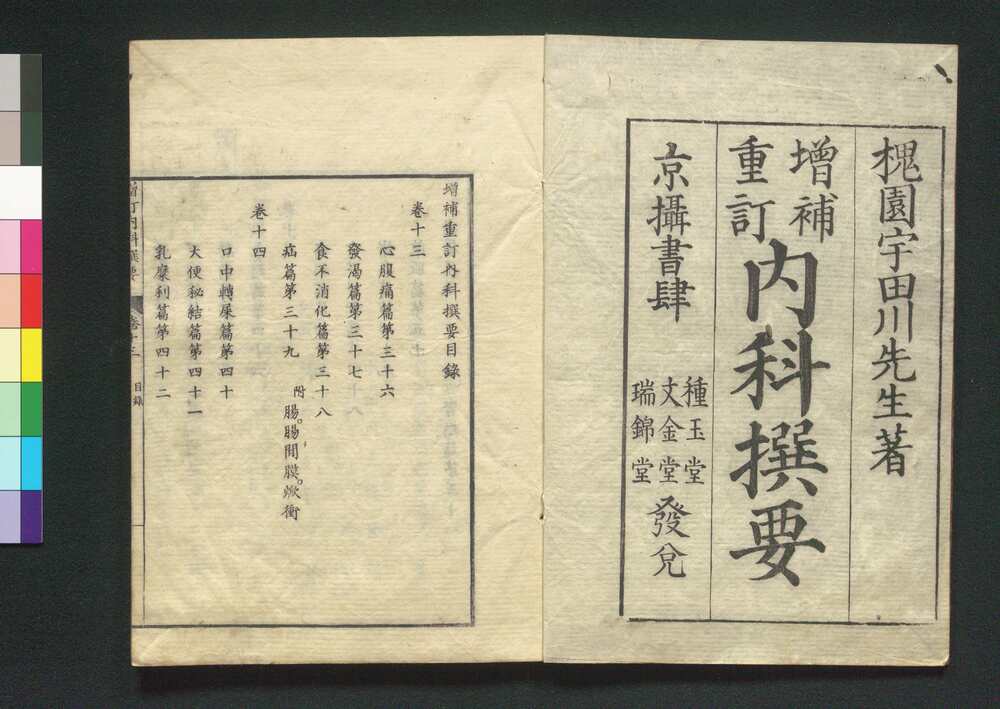 槐園宇田川先生著
增補
重訂
内科撰要
京攝書肆
種玉堂
文金堂
瑞錦堂
發兌
增補重訂内科撰要目錄
卷十三
心腹痛篇第三十六
發渴篇第三十七
食不消化篇第三十八
疝篇第三十九
附腸。腸間膜。焮衝
卷十四
口中轉屎篇第四十
大便秘結篇第四十一
乳糜利篇第四十二
增訂内科撰要
卷十三
目錄